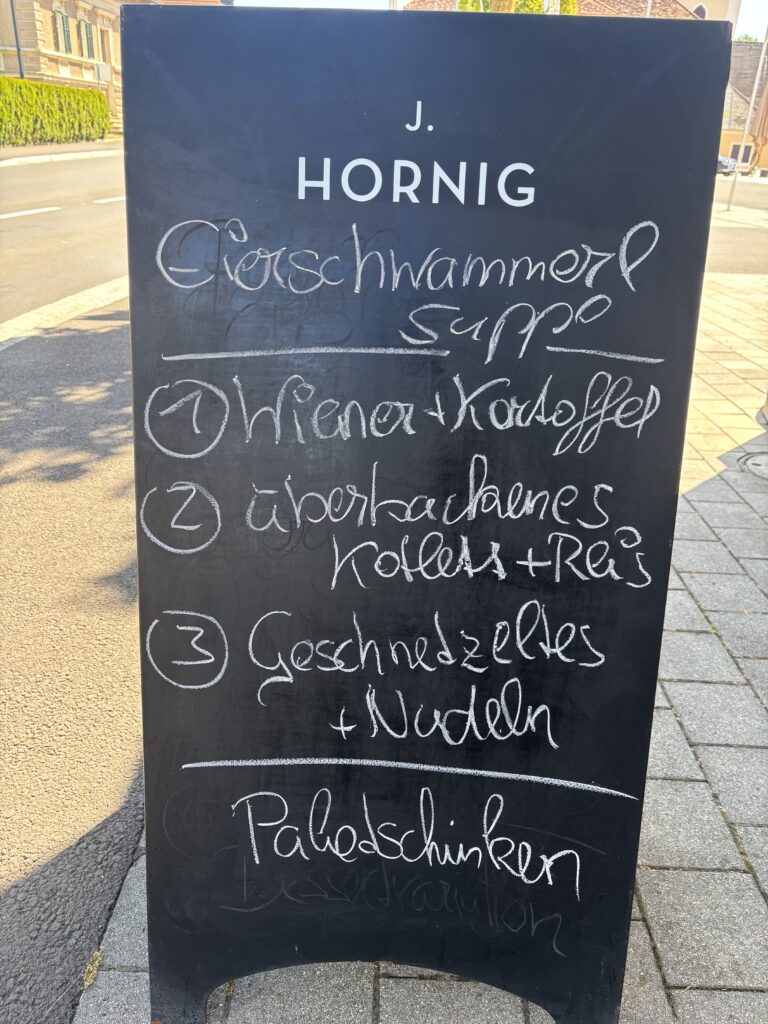 J.
HORNIG
Eierschwammerl
Suppe
① Wiener + Kartoffel
② überbackenes
Kotlett + Reis
③ Geschnetzeltes
+ Nudeln
Palatschinken